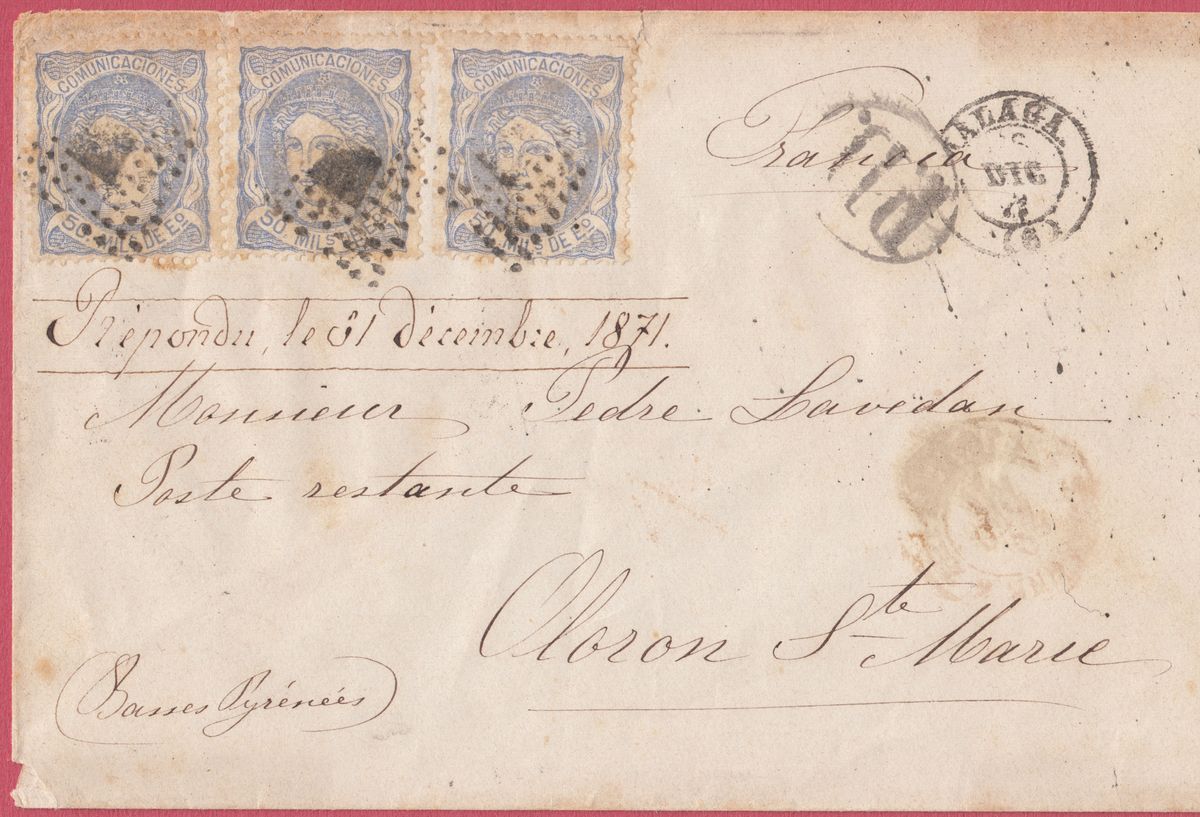 COMUNICACIONES
50 MILS DE Eº
COMUNICACIONES
50 MILS DE Eº
COMUNICACIONES
50 MILS DE Eº
Francia
MALAGA
DIC
71
(6)
P.D.
Répondu, le 31 décembre, 1871.
Monsieur Pedre Lavedan
Poste restante
Oloron Ste Marie
(Basses Pyrénées)